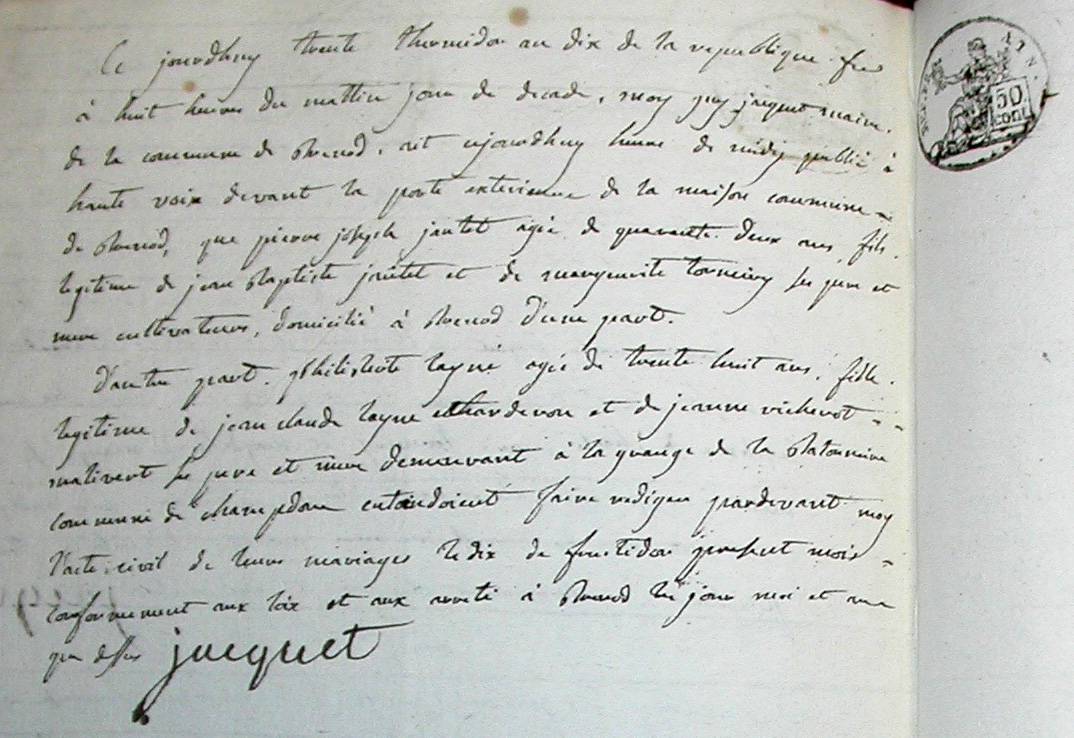 Ce jourdhuy trente thermidor an dix de la republique
à huit heures du mattin jour de decade, moy guy jacquet maire.
de la commune de Brenod, ait ajourdhuy heure de midy publié à
haute voix devant la porte exterieure de la maison commune
de Brenod, que pierre joseph jantet agée de quarante deux ans, fils.
legitime de jean Baptiste jantet et de marguerite ses pere et
mere cultivateurs, domicilié à Brenod D'une part.
D'autre part. philiberte layné agée de trente huit ans, fille.
legitime de jean claude layne et de jeanne
ses pere et mere demeurant à la grange de la
commune de champdore entandoient faire rediger pardevant moy
l'acte civil de leurs mariages le dix de fructidor present mois
conformement aux loix et aux areté à Brenod les jour moi et an
que dessus jacquet
50
cent